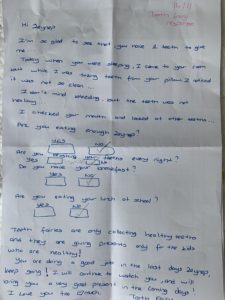 Tooth fairy
Hi Zeynep!
I'm so glad to see that you have a tooth to give
me.
Today when you were sleeping, I came to your room
but while I was taking teeth from your pillow I noticed
it was not so clean...
I don't mind bleeding, but the teeth was not
healthy.
I checked your mouth and looked at other teeths...
Are you eating enough Zeynep?
YES NO
Are you brushing your teeths every night?
YES NO
Do you have your breakfast?
Are you eating your lunch at school?
YES NO
Tooth fairies are only collecting healthy teeths
and they are giving presents only for the kids
who are healthy!
You are doing a good job in the last days Zeynep
keep going! I will continue to watch you, and will
bring you a very good present in the coming days!
I love you too much.
Tooth Fairy